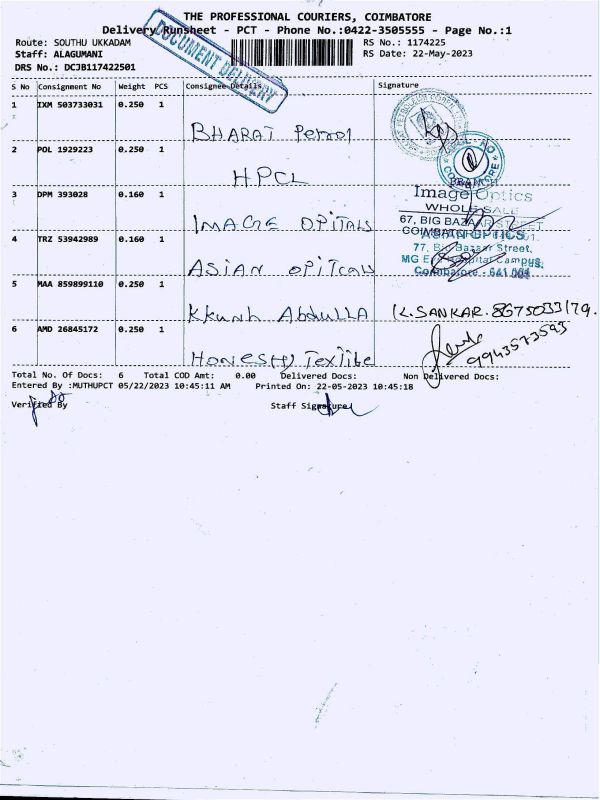 THE PROFESSIONAL COURIERS, COIMBATORE
Delivery Runsheet - PCT - Phone No.:0422-3505555 - Page No.:1
Route: SOUTHU UKKADAM
RS No.: 1174225
Staff: ALAGUMANI
RS Date: 22-May-2023
DRS No.: DCJB117422501
DOCUMENT DELIVERY
S No Consignment No Weight PCS Consignee Details Signature
1 IXM 503733031 0.250 1
BHARAT Petrol
2 POL 1929223 0.250 1
HPCL
3 DPM 393028 0.160 1
IMAGE OPITALS
Image Optics
WHOLE SALE
67, BIG BAZAAR STREET
COIMBATORE
4 TRZ 53942989 0.160 1
ASIAN OPITCALS
ASIAN OPTICS
77, Big Bazaar Street,
MG Hospital Campus,
Coimbatore - 641 001
5 MAA 859899110 0.250 1
Abdulla
K.SANKAR. 8675033179.
6 AMD 26845172 0.250 1
HONESTY Textile
9943573593
Total No. Of Docs: 6 Total COD Amt: 0.00 Delivered Docs: Non Delivered Docs:
Entered By :MUTHUPCT 05/22/2023 10:45:11 AM Printed On: 22-05-2023 10:45:18
Verified By Staff Signature